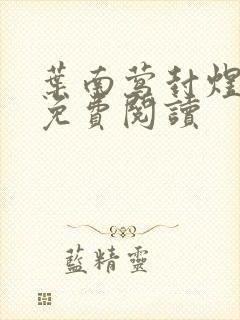 葉南鶯封煌
免費閱讀
藍精靈